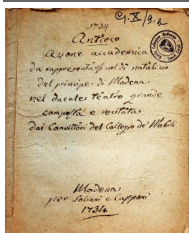 1734
Antioco
Azione accademica
da rappresentarsi nel dì natalizio
del principe di Modena
nel ducale teatro grande
composta e recitata
dai Convittori del Collegio de' Nobili
Modena
per Soliani e Capponi
1734